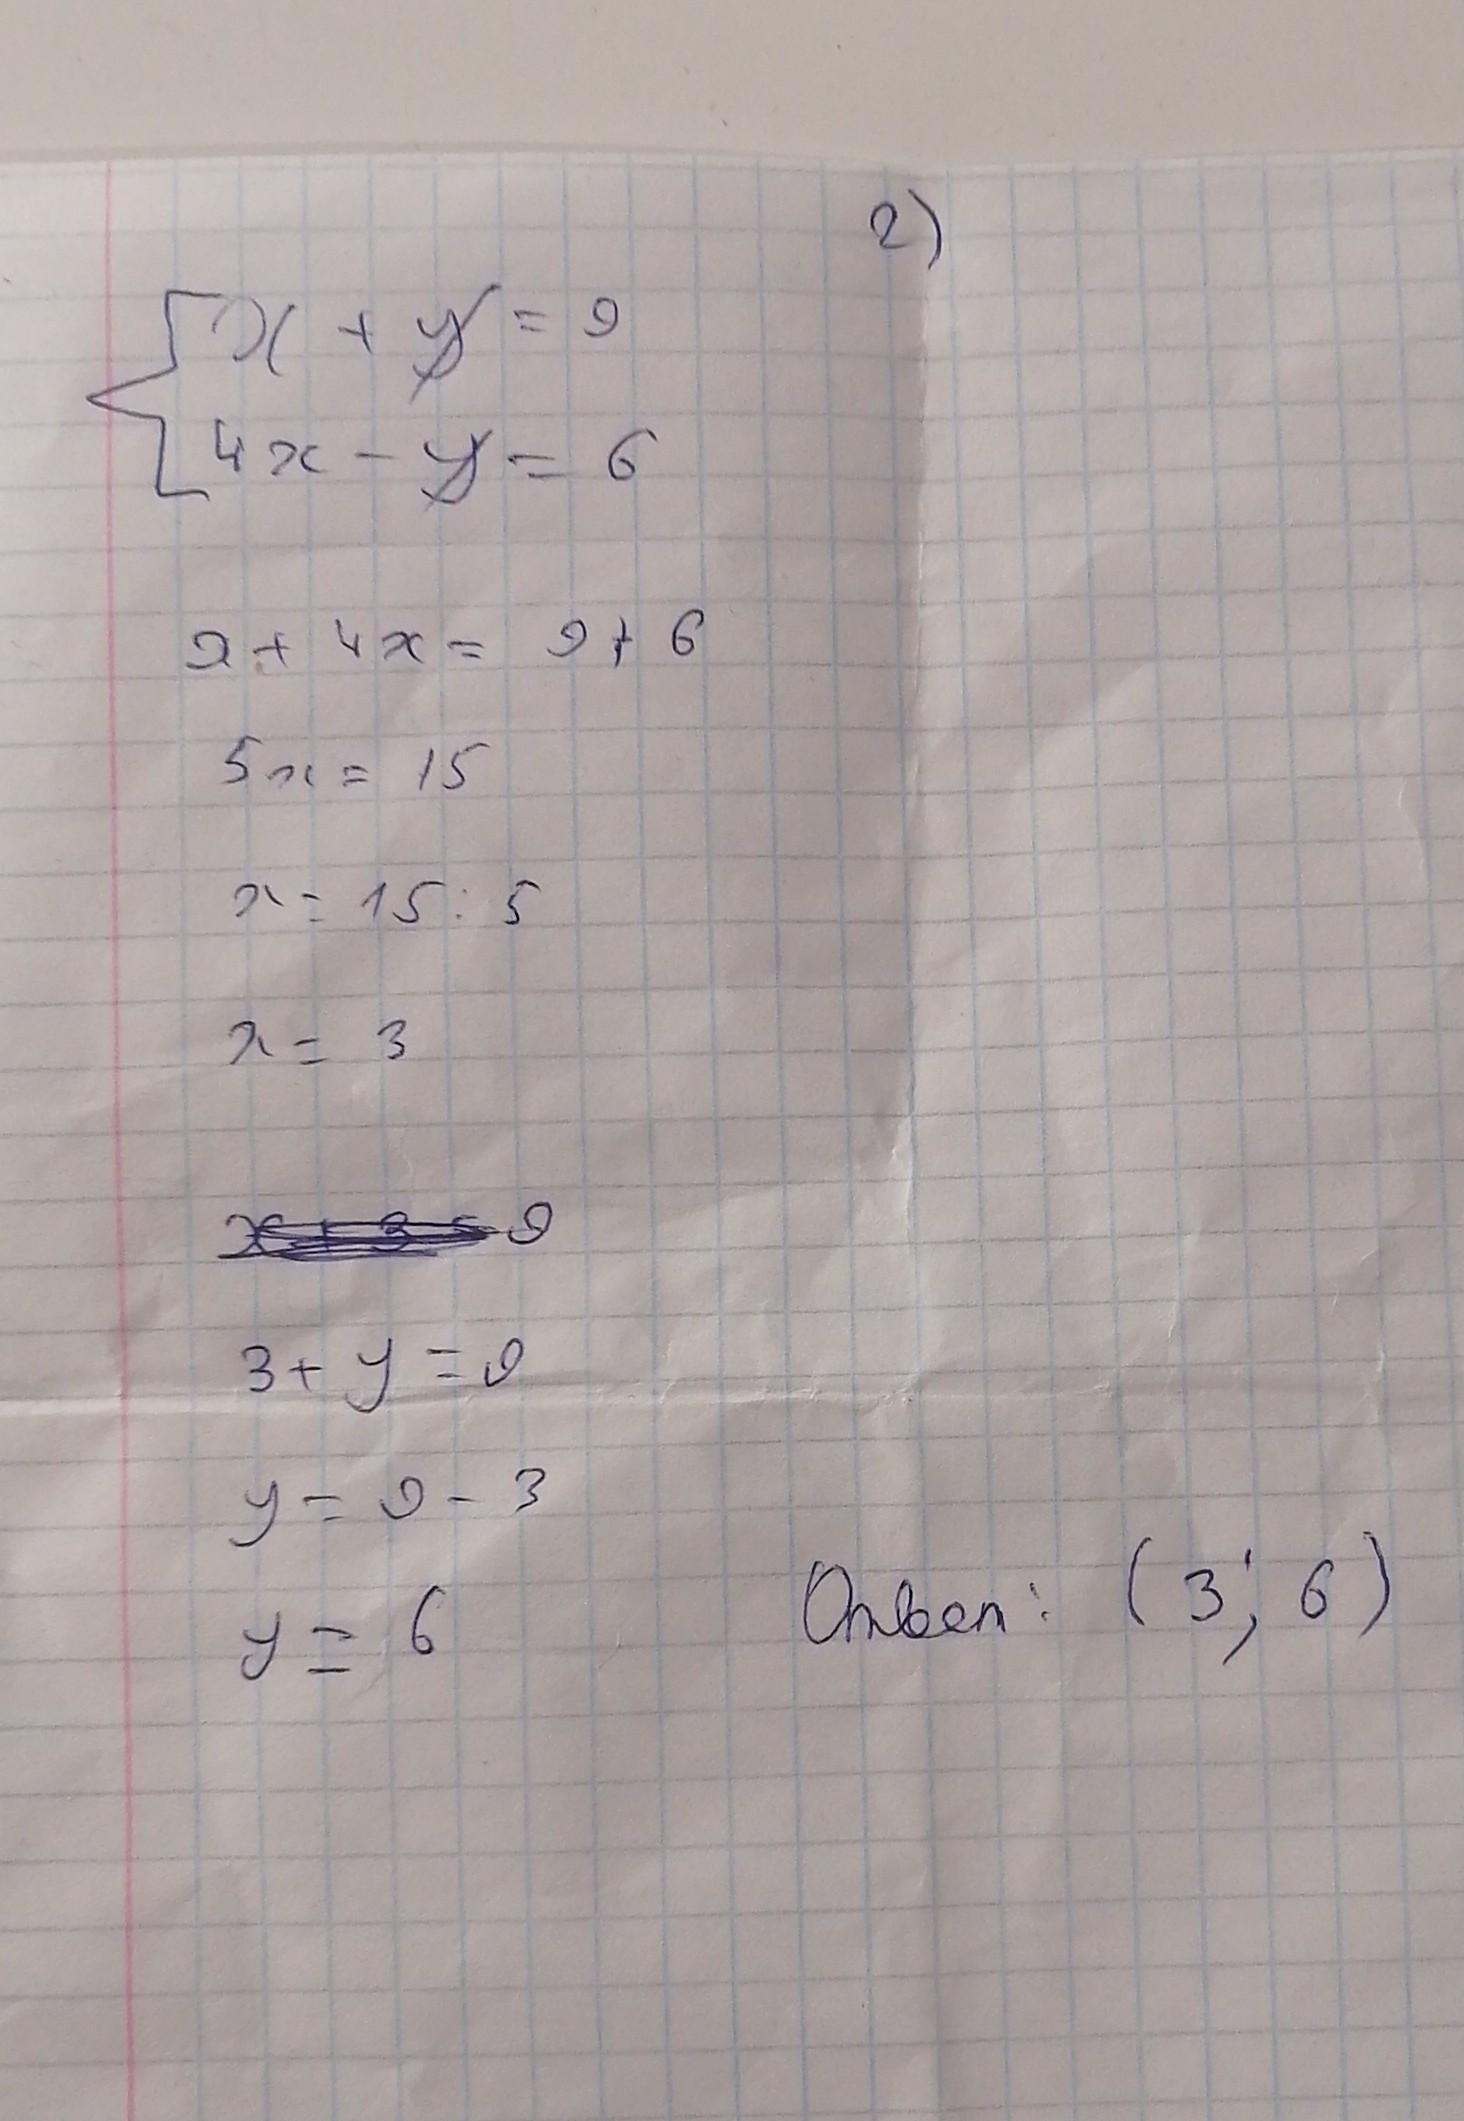 2)
x + y = 9
4x - y = 6
x + 4x = 9 + 6
5x = 15
x = 15 : 5
x = 3
x + 3 = 9
3 + y = 9
y = 9 - 3
y = 6
Ответ: (3; 6)